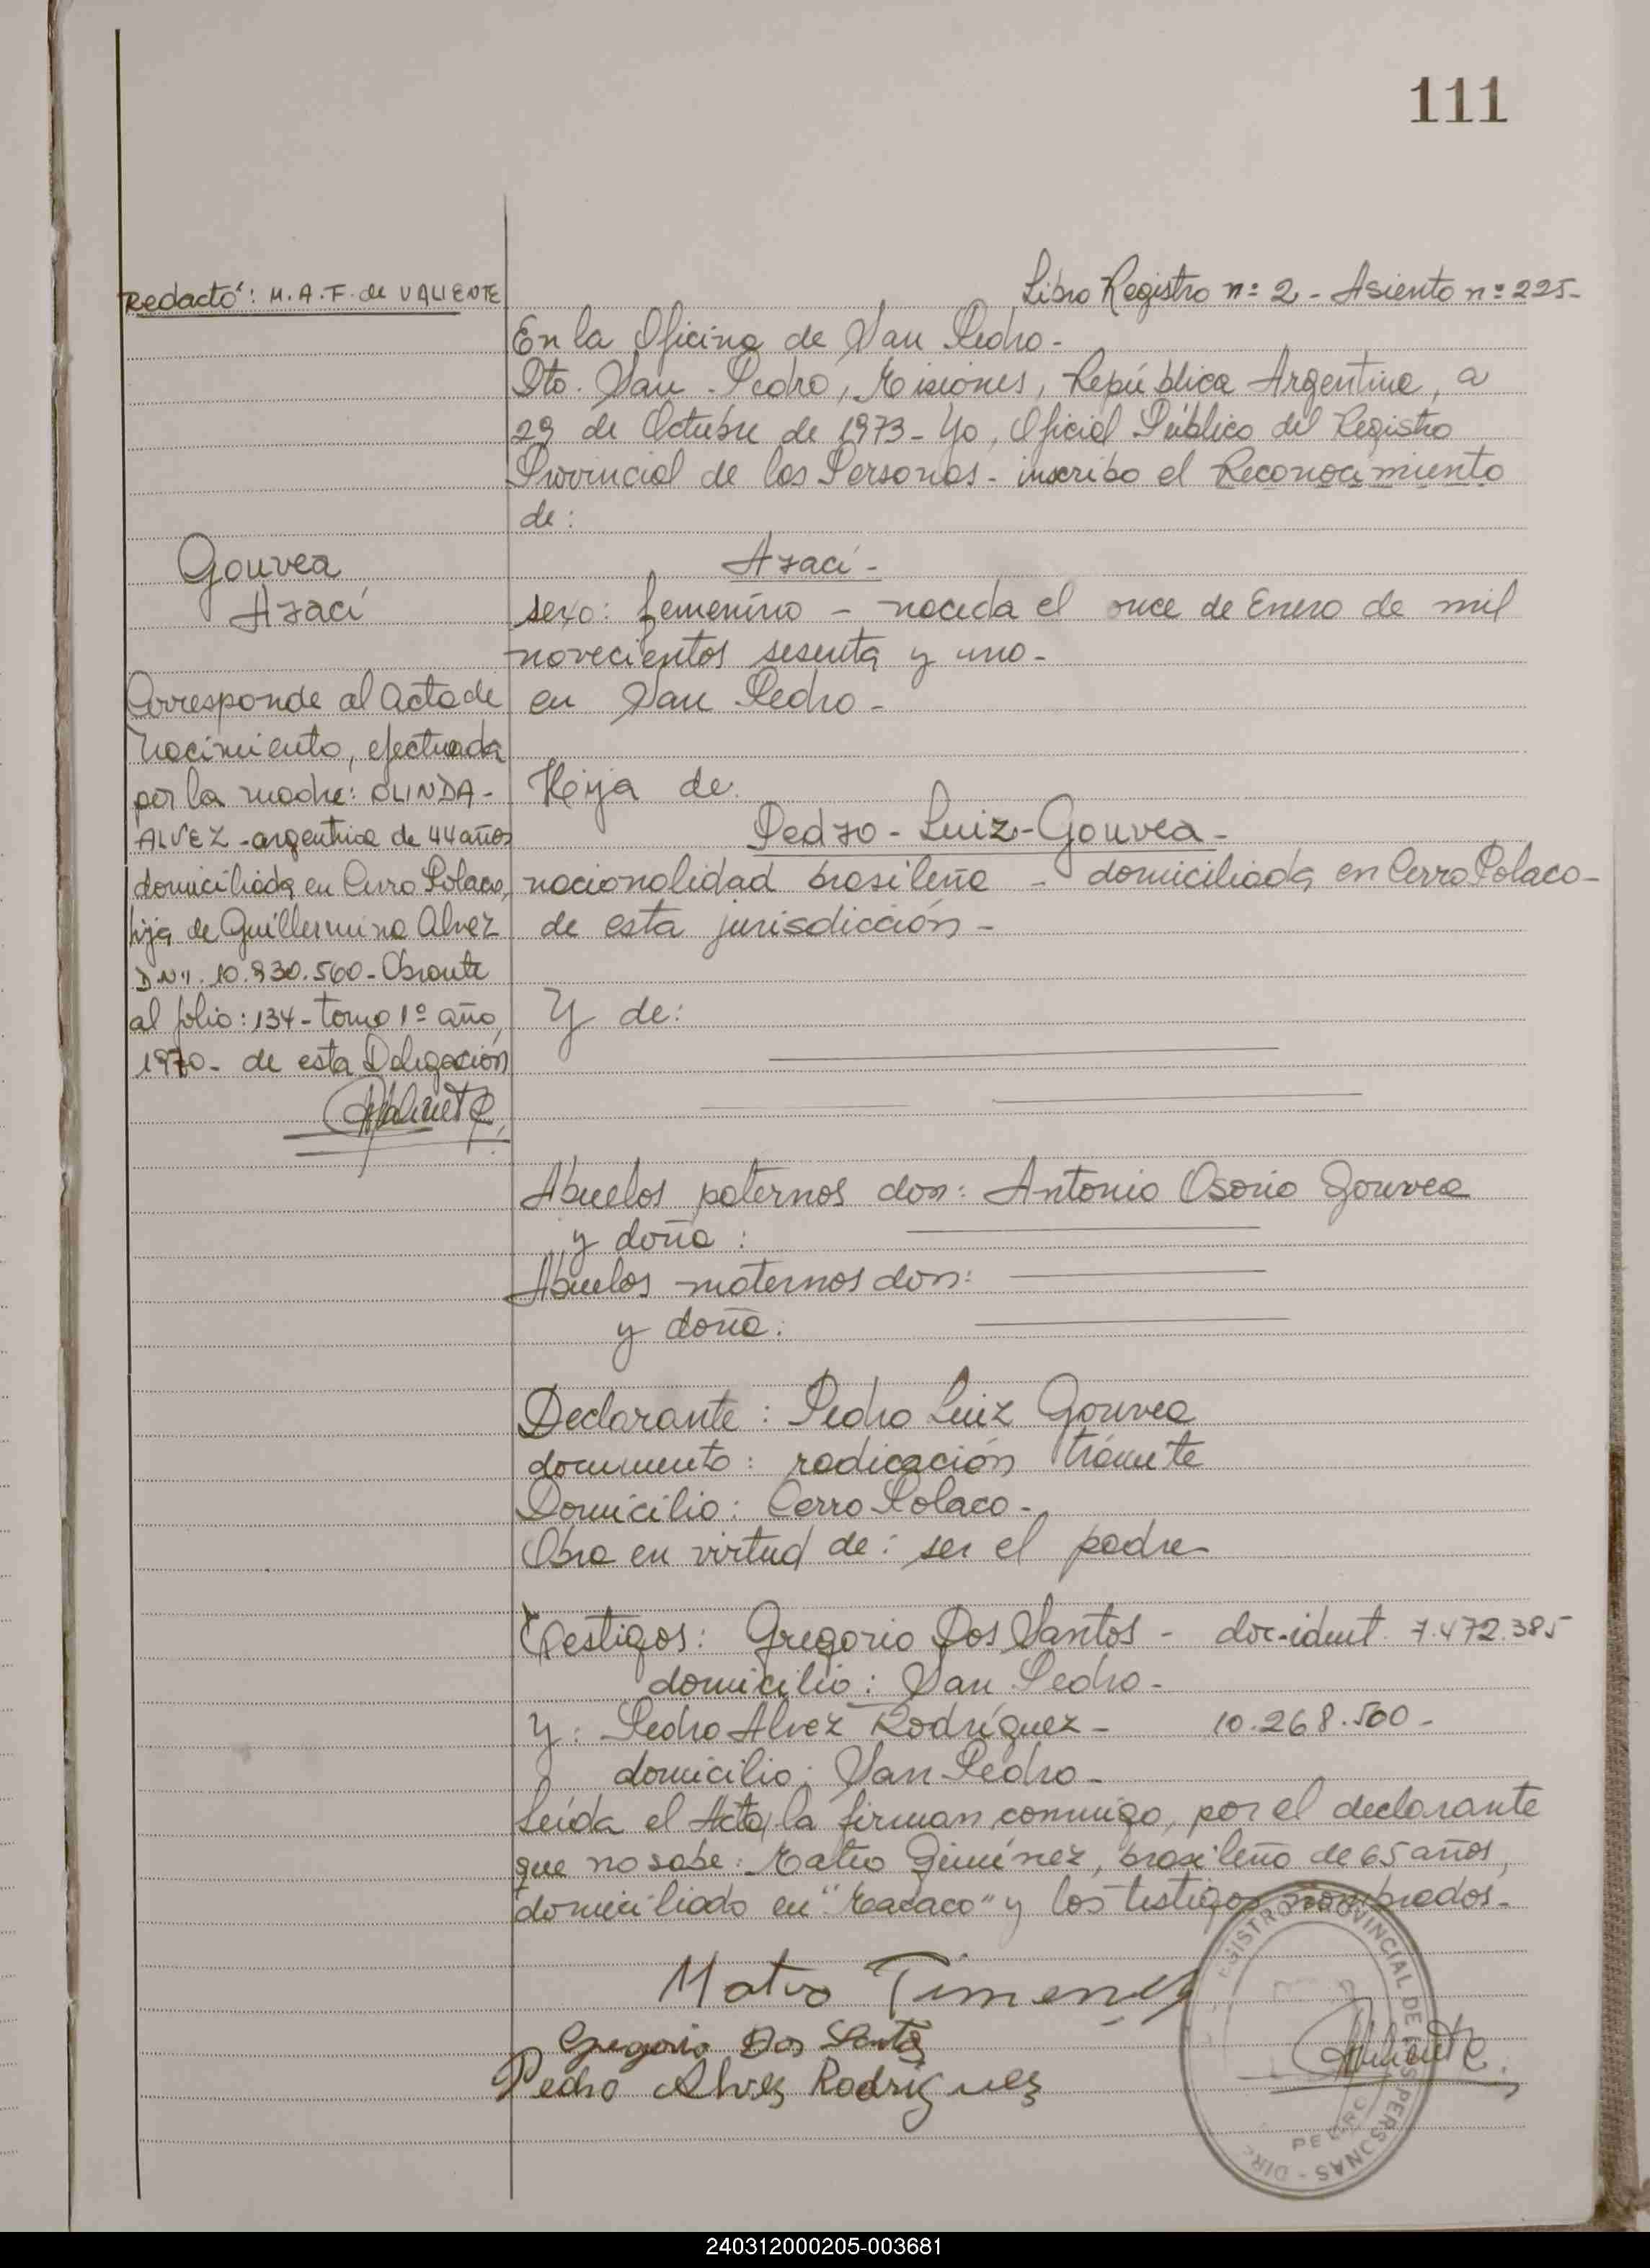 111
Redactó: M.A.F. de VALIENTE
Libro Registro nº 2 - Asiento nº 225-
En la Oficina de San Pedro-
Dto. San Pedro, Misiones, República Argentina, a
29 de Octubre de 1973- Yo, Oficial Público del Registro
Provincial de las Personas- inscribo el Reconocimiento
de:
Gouvea
Arací
Arací-
sexo: femenino - nacida el once de Enero de mil
novecientos sesenta y uno-
en San Pedro-
Corresponde al acta de
nacimiento, efectuada
por la madre: OLINDA-
ALVEZ - argentina de 44 años
domiciliada en Cerro Polaco,
hija de Guillermina Alvez
DNI. 10.830.560- Obrante
al folio: 134- tomo 1º año,
1970- de esta Delegación
Hija de:
Pedro-Luiz-Gouvea-
nacionalidad brasileña - domiciliada en Cerro Polaco-
de esta jurisdicción-
Y de:
Abuelos paternos don: Antonio Osorio Gouvea
y doña:
Abuelos maternos don:
y doña:
Declarante: Pedro Luiz Gouvea
documento: radicación trámite
Domicilio: Cerro Polaco-
Obra en virtud de: ser el padre
Testigos: Gregorio Dos Santos - doc-ident. 7.472.385
domicilio: San Pedro-
y: Pedro Alvez Rodríguez- 10.268.500-
domicilio: San Pedro-
Leída el Acta, la firman conmigo, por el declarante
que no sabe: Mateo Giménez, brasileño de 65 años,
domiciliado en "Macaco" y los testigos nombrados-
Mateo Timenez
Gregorio Dos Santos
Pedro Alvez Rodriguez
REGISTRO PROVINCIAL DE LAS PERSONAS - DIR.
240312000205-003681